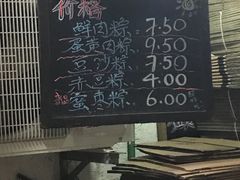 价格
鲜肉粽 7.50
蛋黄肉粽 9.50
豆沙粽 7.50
赤豆粽 4.00
蜜枣粽 6.00